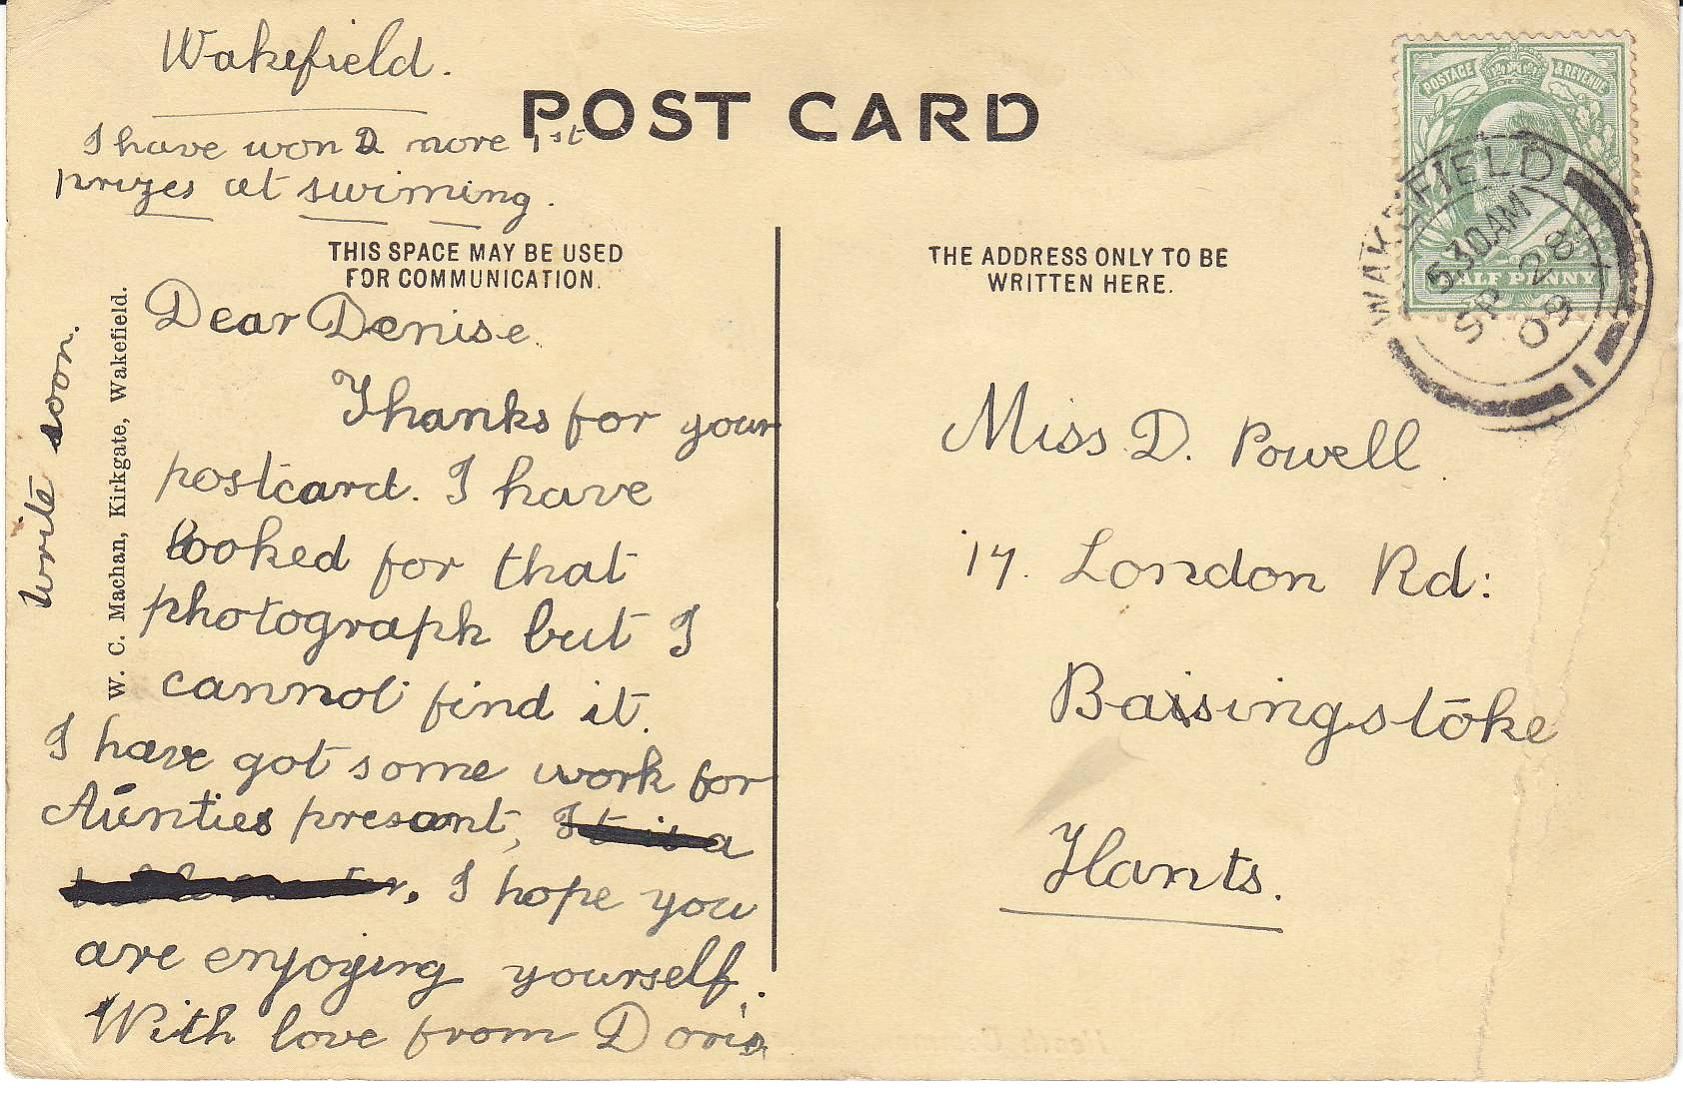 Wakefield.
POST CARD
I have won 2 more 1st
prizes at swiming.
THIS SPACE MAY BE USED
FOR COMMUNICATION.
Dear Denise.
Thanks for your
postcard. I have
looked for that
photograph but I
cannot find it.
I have got some work for
Aunties presant, It is a
I hope you
are enjoying yourself.
With love from Doris
write soon.
W. C. Machan, Kirkgate, Wakefield.
THE ADDRESS ONLY TO BE
WRITTEN HERE.
Miss D. Powell
17. London Rd:
Baisingstoke
Hants.
POSTAGE & REVENUE
HALF PENNY
WAKEFIELD
5 30 AM
SP 28
09
1